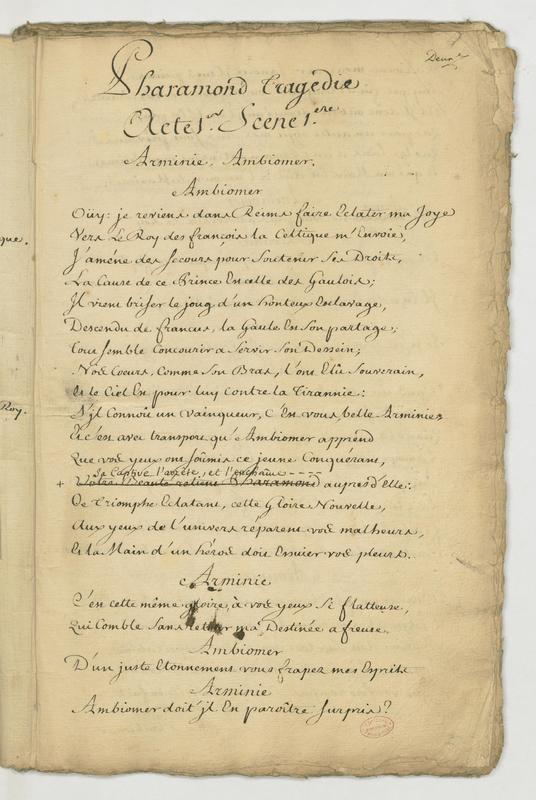 Pharamond Tragedie
Acte 1er. Scene 1.ere
Arminie. Ambiomer.
Ambiomer
Oüy: je reviens dans Reims faire Eclater ma Joye
Vers Le Roy des françois la Celtique m'Envoie,
J'amêne des secours pour Soutenir Ses Droits,
La Cause de ce Prince En celle des Gaulois;
Il vient briser le joug d'un honteux Esclavage,
Descendu de francus, la Gaule En Son partage;
Tout semble Concourir a Servir Son Dessein;
Nos Coeurs, Comme Son Bras, l'ont Elû Souverain,
Et le Ciel En pour luy Contre la Tirannie:
S'jl Connoît un vainqueur, C'En vous, belle Arminie
Et c'est avec transport qu'Ambiomer apprend
Que vos yeux ont soûmis ce jeune Conquérant,
Sa Captive l'arrête, et l'enchaine ----
+ Votre Beauté retient Pharamond aupres d'Elle:
De Triomphe Eclatant, cette Gloire Nouvelle,
Aux yeux de l'univers réparent vos malheurs,
Et la Main d'un héros doit Essuier vos pleurs.
Arminie
C'en cette même gloire, à vos yeux si flatteuse,
Qui Comble Sans retour ma Destinée afreuse.
Ambiomer
D'un juste Etonnement vous frapez mes Esprits
Arminie
Ambiomer doit-jl En paroître Surpris?
que.
Roy.